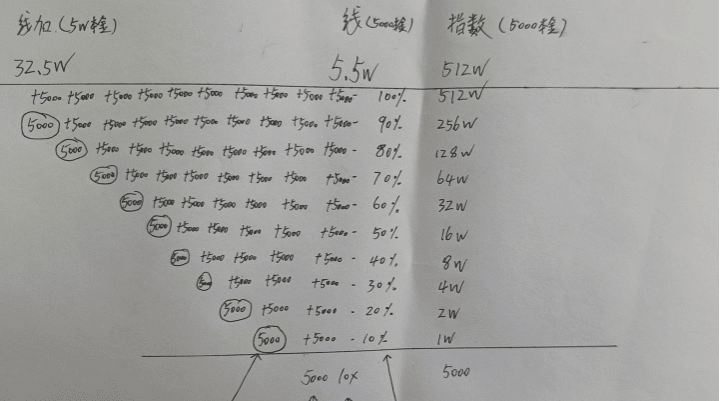 线加(5W输) 线(5000输) 指数(5000输)
32.5W 5.5W 512W
+5000 +5000 +5000 +5000 +5000 +5000 +5000 +5000 +5000 +5000- 100% 512W
5000 +5000 +5000 +5000 +5000 +5000 +5000 +5000 +5000 +5000- 90% 256W
5000 +5000 +5000 +5000 +5000 +5000 +5000 +5000 +5000- 80% 128W
5000 +5000 +5000 +5000 +5000 +5000 +5000 +5000- 70% 64W
5000 +5000 +5000 +5000 +5000 +5000 +5000- 60% 32W
5000 +5000 +5000 +5000 +5000 +5000- 50% 16W
5000 +5000 +5000 +5000 +5000 - 40% 8W
5000 +5000 +5000 +5000 - 30% 4W
5000 +5000 +5000 - 20% 2W
5000 +5000 - 10% 1W
5000 10X 5000